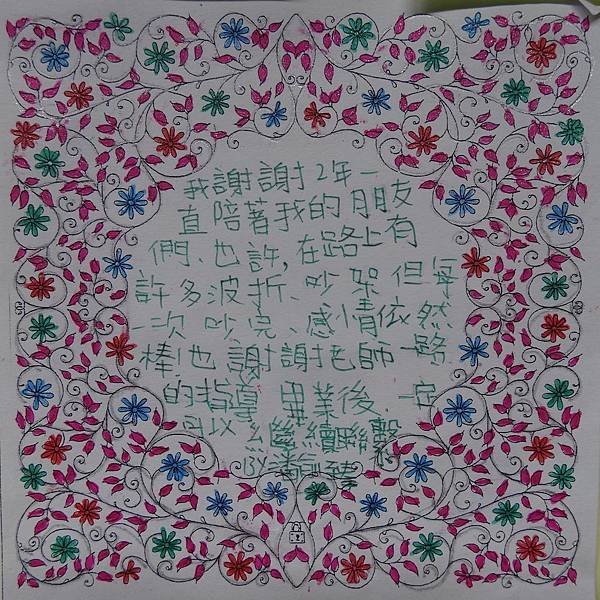 我謝謝2年一
直陪著我的朋友
們、也許,在路上有
許多波折、吵架但每
一次吵完、感情依然
棒!也謝謝老師一路
的指導 畢業後、一定
可以繼續聯繫
BY